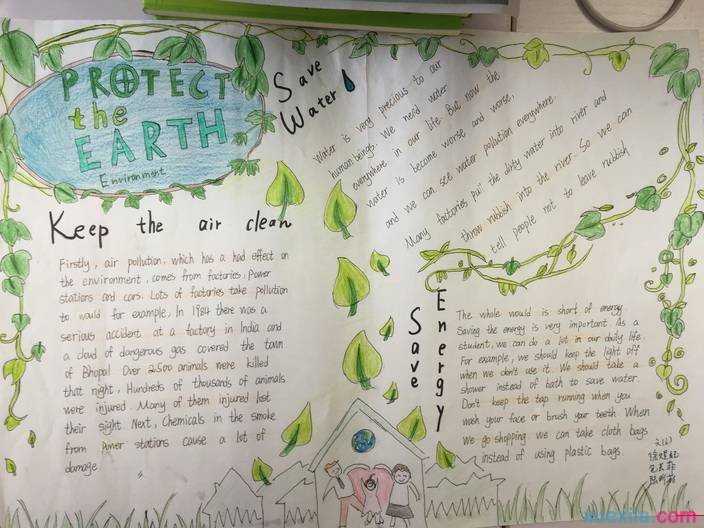 PROTECT
the
EARTH
Environment
Save
Water
Water is very precious to our
human beings. We nerd water
everywhere in our life. But now the
water is become worse and worse,
and we can see water pollution everywhere.
Many factories put the dirty water into river and
throw rubbish into the river. So we can
tell people not to leave rubbish
Keep the air clean
Firstly, air pollution, which has a had effect on
the environment, comes from factories. Power
stations and cars. Lots of factories take pollution
to would for example, In 1984 there was a
serious accident at a factory in India and
a cloud of dangerous gas covered the town
of Bhopal. Over 2500 animals were killed
that night, Hundreds of thousands of animals
were injured. Many of them injured lost
their sight. Next, Chemicals in the smoke
from Power stations cause a lot of
damage
Save
Energy
The whole would is short of energy
Saving the energy is very important. As a
student, we can do a lot in our daily life.
For example, we should keep the light off
when we don't use it. We should take a
shower instead of bath to save water.
Don't keep the tap running when you
wash your face or brush your teeth. When
We go shopping we can take cloth bags
instead of using plastic bags
xuexila.com